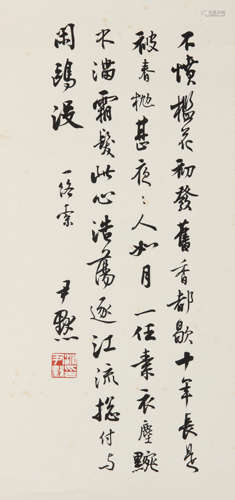 不憤檻花初發舊香都歇十年長是
被春抛甚夜〻人如月一任素衣塵涴
滿霜髮此心浩蕩逐江流總付与
閑鷗没
一络索
尹默